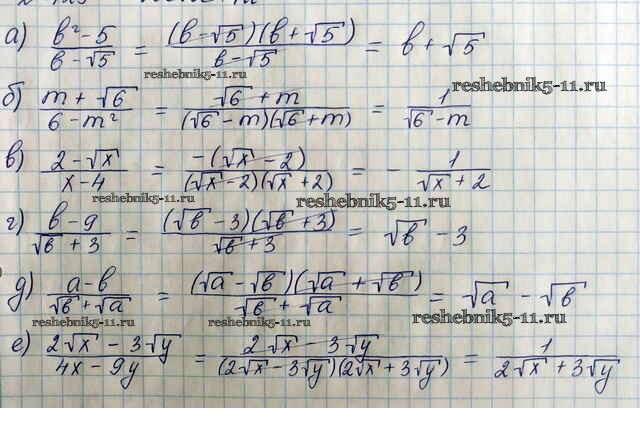 а) (b² - 5)/(b - √5) = ((b - √5)(b + √5))/(b - √5) = b + √5
reshebnik5-11.ru
reshebnik5-11.ru
б) (m + √6)/(6 - m²) = (√6 + m)/((√6 - m)(√6 + m)) = 1/(√6 - m)
reshebnik5-11.ru
в) (2 - √x)/(x - 4) = (-(√x - 2))/((√x - 2)(√x + 2)) = - 1/(√x + 2)
reshebnik5-11.ru
reshebnik5-11.ru
г) (b - 9)/(√b + 3) = ((√b - 3)(√b + 3))/(√b + 3) = √b - 3
д) (a - b)/(√b + √a) = ((√a - √b)(√a + √b))/(√b + √a) = √a - √b
reshebnik5-11.ru
reshebnik5-11.ru
reshebnik5-11.ru
е) (2√x - 3√y)/(4x - 9y) = (2√x - 3√y)/((2√x - 3√y)(2√x + 3√y)) = 1/(2√x + 3√y)